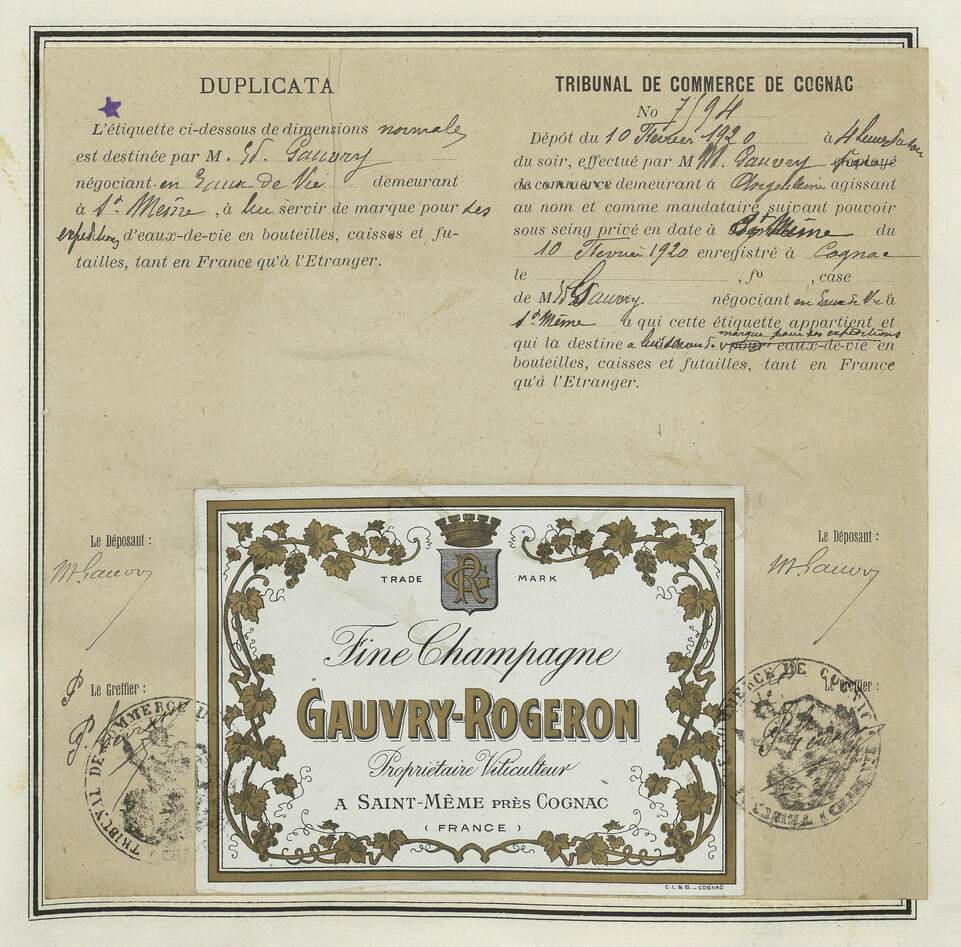 DUPLICATA
L'étiquette ci-dessous de dimensions normales
est destinée par M. Ed. Gauvry
négociant en Eaux de Vie demeurant
à St Même, à lui servir de marque pour ses
expéditions d'eaux-de-vie en bouteilles, caisses et fu-
tailles, tant en France qu'à l'Etranger.
TRIBUNAL DE COMMERCE DE COGNAC
No 7194
Dépôt du 10 Février 1920 à 4 heures du soir
du soir, effectué par M M. Gauvry employé
de commerce demeurant à Angoulême agissant
au nom et comme mandataire suivant pouvoir
sous seing privé en date à St Même du
10 Février 1920 enregistré à Cognac
le , fo , case
de M Ed Gauvry. négociant en Eaux de Vie à
St Même à qui cette étiquette appartient et
marque pour ses expéditions
qui la destine à lui servir de pour eaux-de-vie en
bouteilles, caisses et futailles, tant en France
qu'à l'Etranger.
Le Déposant :
M. Gauvry
Le Greffier :
Le Déposant :
M. Gauvry
Le Greffier :
TRIBUNAL DE COMMERCE DE
TRADE MARK
RG
Fine Champagne
GAUVRY-ROGERON
Propriétaire Viticulteur
A SAINT-MÊME PRÈS COGNAC
( FRANCE )
C.L. & B._ COGNAC